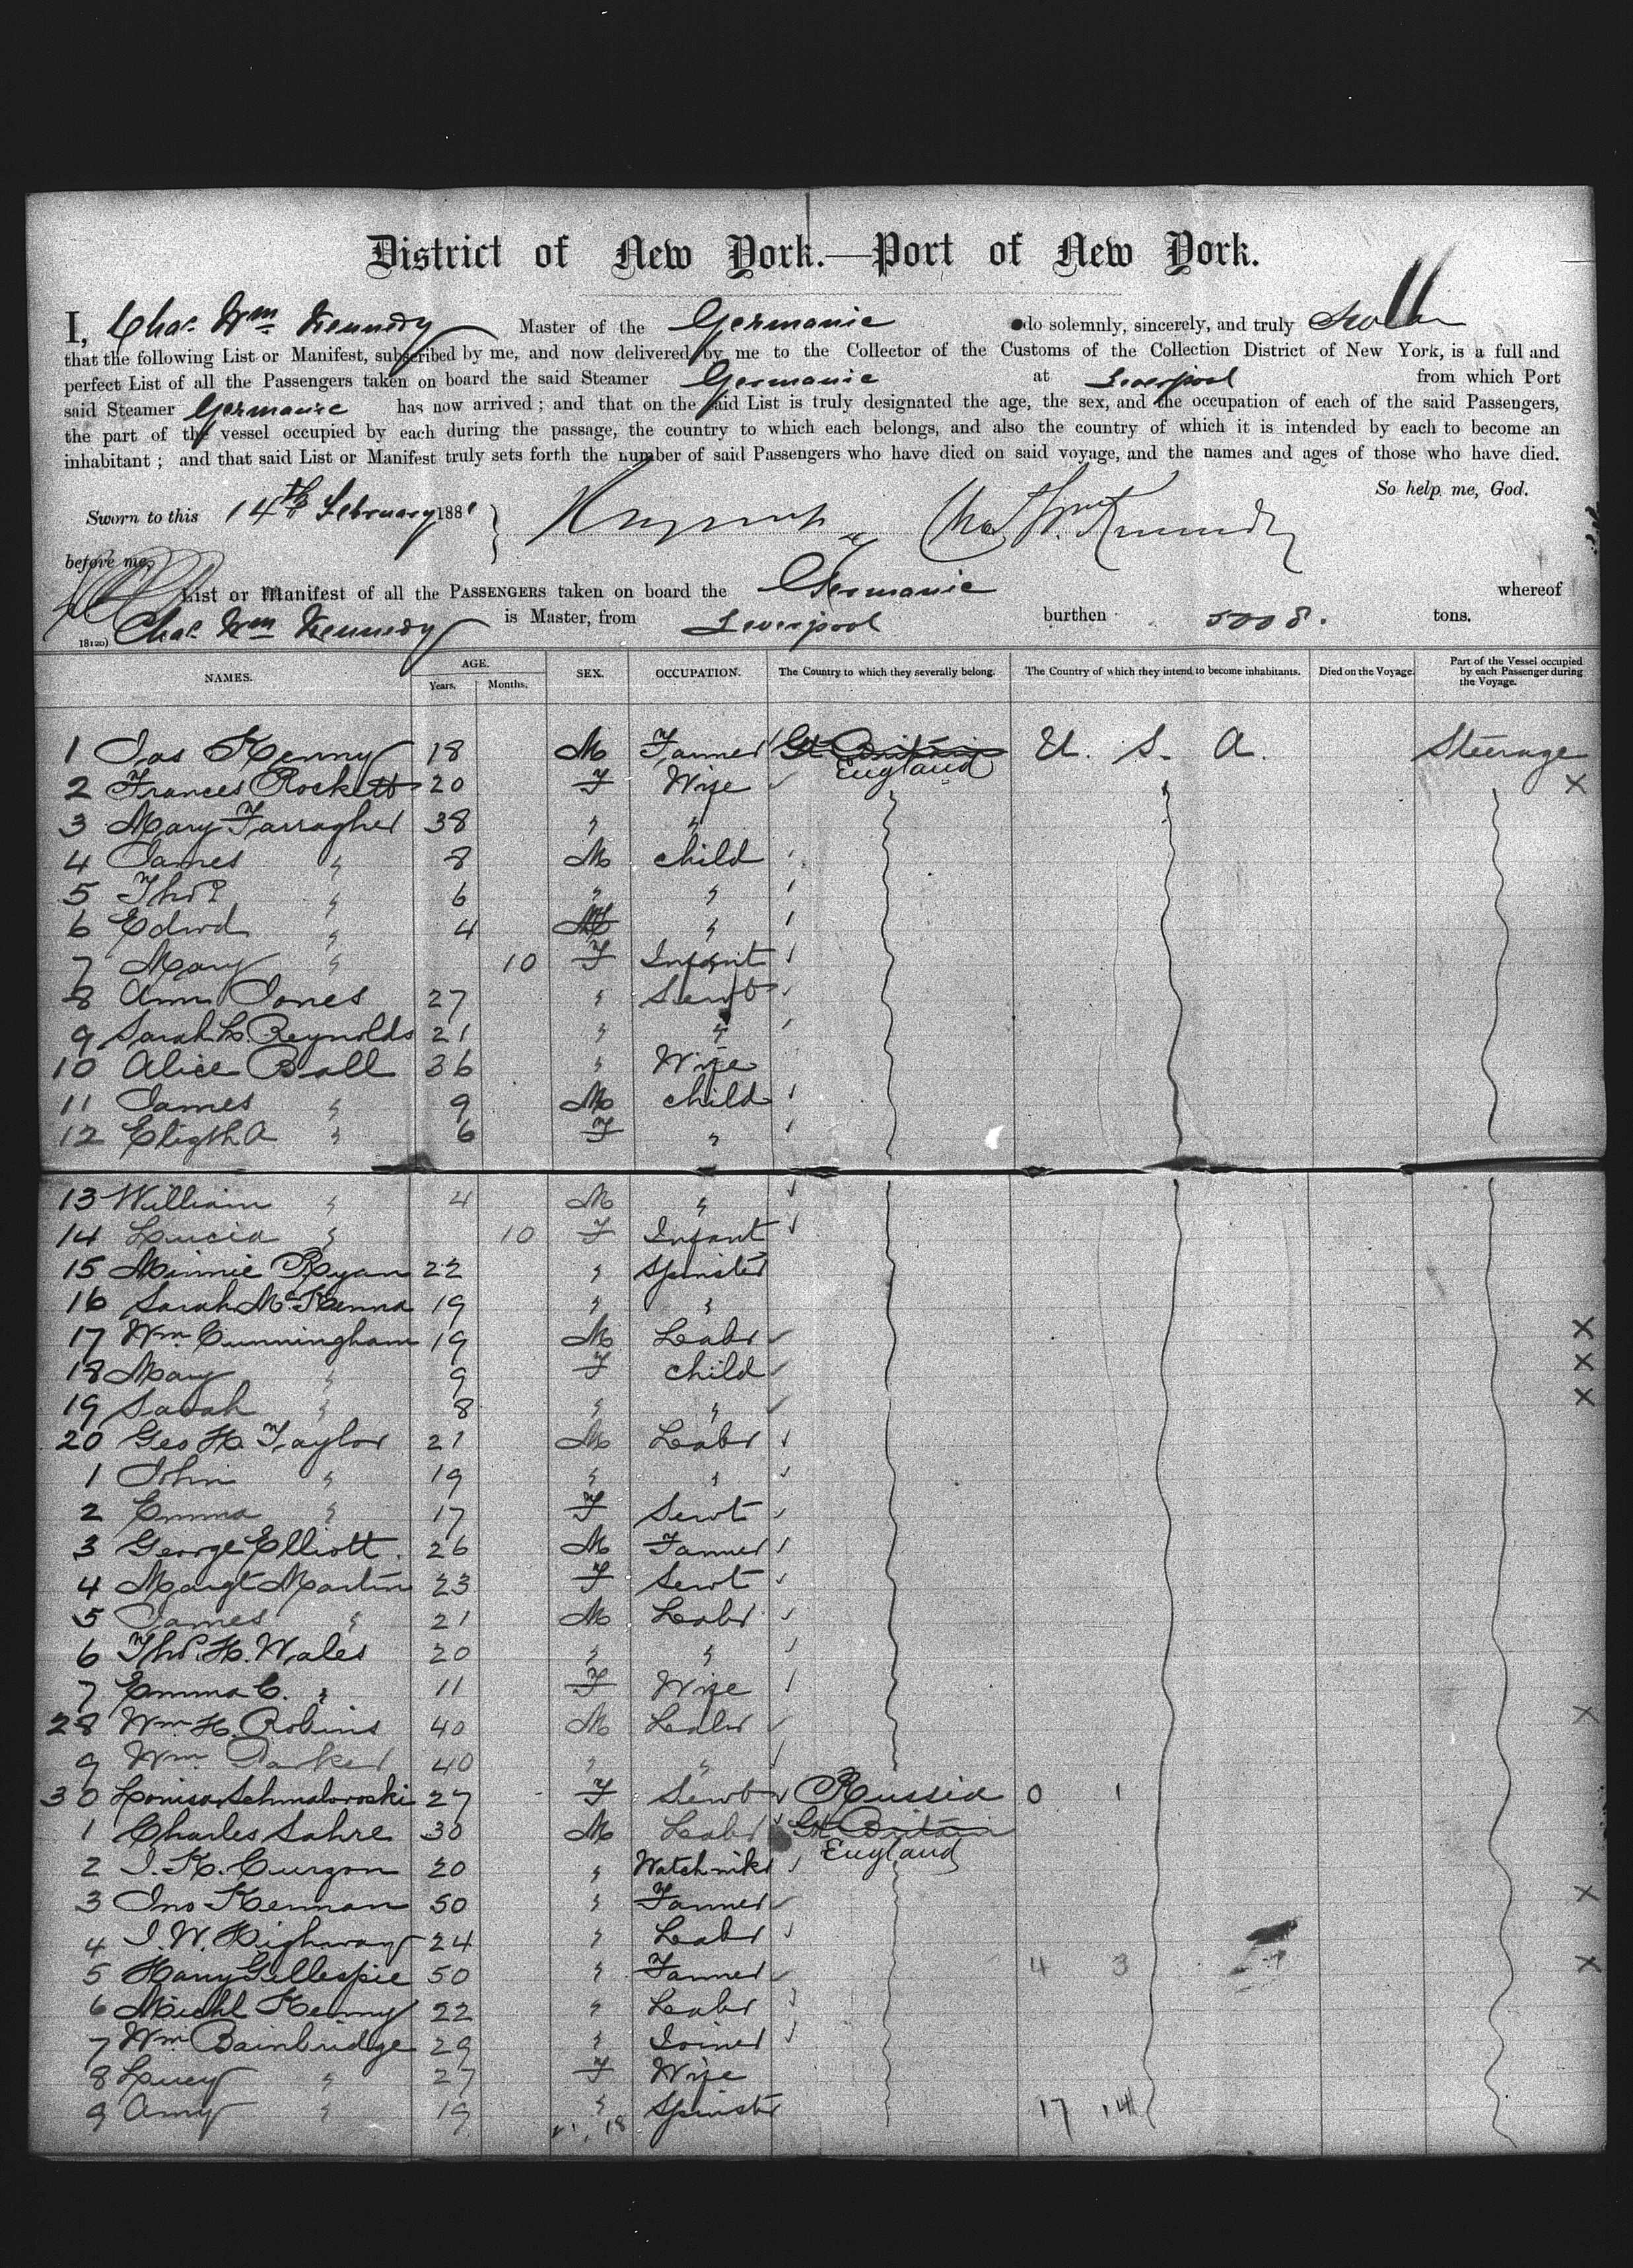 District of New York.—Port of New York.
I, Chas. Wm Kennedy Master of the Germanic do solemnly, sincerely, and truly Swear
that the following List or Manifest, subscribed by me, and now delivered by me to the Collector of the Customs of the Collection District of New York, is a full and
perfect List of all the Passengers taken on board the said Steamer Germanic at Liverpool from which Port
said Steamer Germanic has now arrived; and that on the said List is truly designated the age, the sex, and the occupation of each of the said Passengers,
the part of the vessel occupied by each during the passage, the country to which each belongs, and also the country of which it is intended by each to become an
inhabitant; and that said List or Manifest truly sets forth the number of said Passengers who have died on said voyage, and the names and ages of those who have died.
So help me, God.
Sworn to this 14th February 1881 Chas Wm Kennedy
before me,
List or Manifest of all the PASSENGERS taken on board the Germanic whereof
Chas. Wm Kennedy is Master, from Liverpool burthen 5008. tons.
NAMES. AGE. Years. Months. SEX. OCCUPATION. The Country to which they severally belong. The Country of which they intend to become inhabitants. Died on the Voyage. Part of the Vessel occupied by each Passenger during the Voyage.
1 Jas Kenny 18 M Farmer Gt Britain U. S. A. Steerage
England
2 Frances Rockett 20 F Wife X
3 Mary Farragher 38 " "
4 James " 8 M child
5 Thos " 6 " "
6 Edwd " 4 M "
7 Mary " 10 F Infant
8 Ann Jones 27 " Servt
9 Sarah L. Reynolds 21 " "
10 Alice Ball 36 " Wife
11 James " 9 M child
12 Elizth A " 6 F "
13 William " 4 M "
14 Lucia " 10 F Infant
15 Minnie Ryan 22 " Spinster
16 Sarah McKenna 19 " "
17 Wm Cunningham 19 M Labr X
18 Mary " 9 F child X
19 Sarah " 8 " " X
20 Geo H. Taylor 21 M Labr
1 John " 19 " "
2 Emma " 17 F Servt
3 George Elliott 26 M Farmer
4 Margt Martin 23 F Servt
5 James " 21 M Labr
6 Thos. H. Wales 20 " "
7 Emma C. " 11 F Wife
28 Wm H. Robins 40 M Labr X
9 Wm Parker 40 " "
30 Louisa Schmaloroski 27 F Servt Russia 0 1
1 Charles Sahre 30 M Labr Gt Britain
England
2 J. K. Curzon 20 " Watchmkr
3 Jno Kernan 50 " Farmer X
4 J. W. Highway 24 " Labr
5 Harry Gillespie 50 " Farmer 4 3 X
6 Michl Kenny 22 " Labr
7 Wm Bainbridge 29 " Joiner
8 Lucy " 27 F Wife
9 Amy " 19 " Spinster 17 14